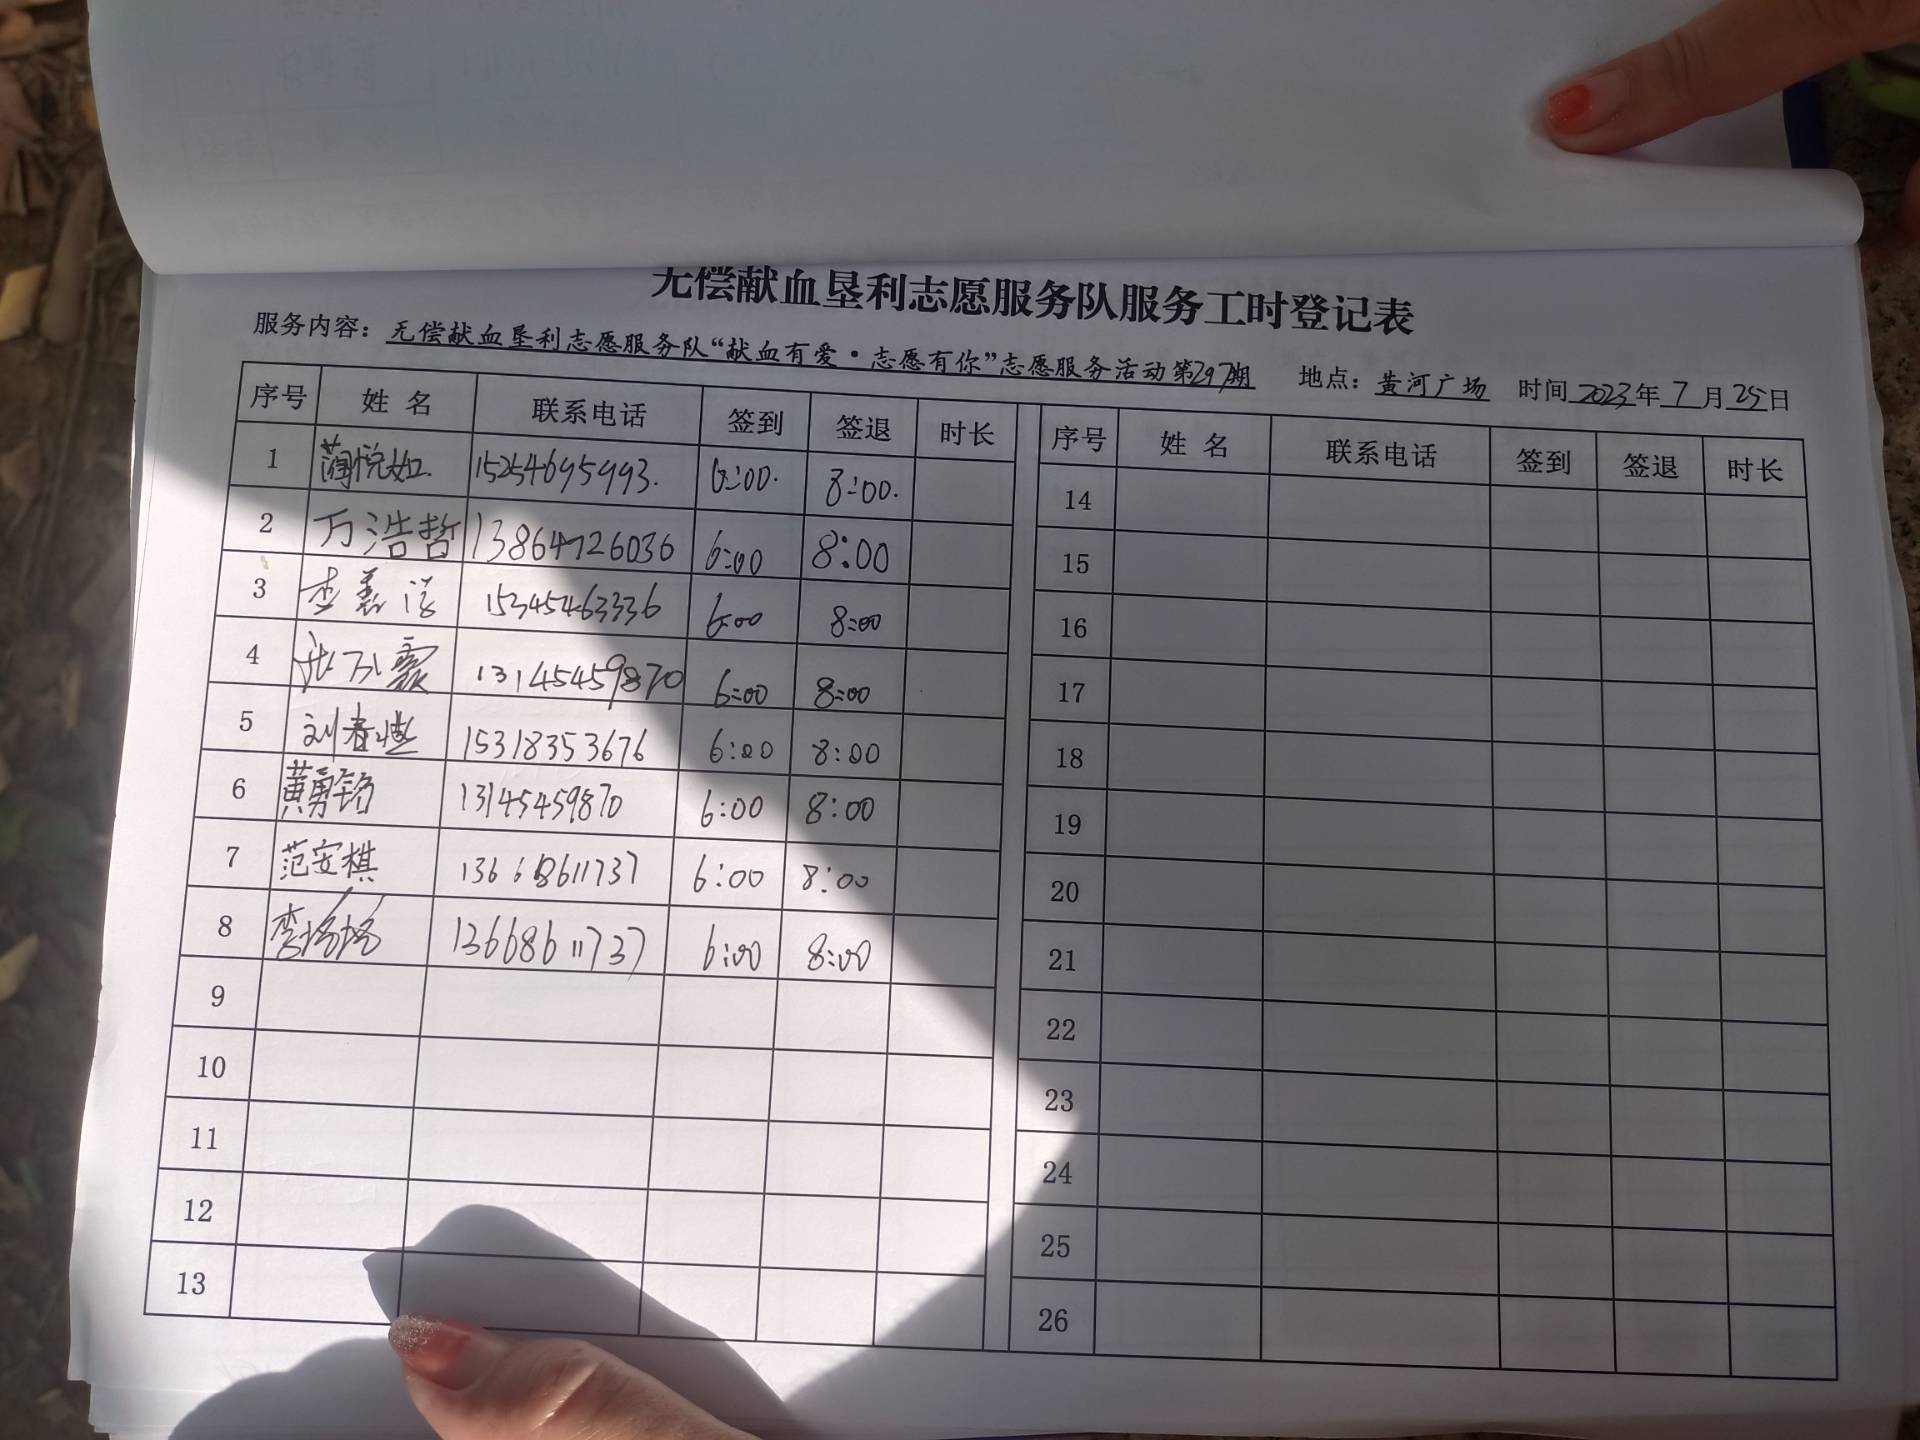 无偿献血垦利志愿服务队服务工时登记表
服务内容：无偿献血垦利志愿服务队“献血有爱·志愿有你”志愿服务活动第297期 地点：黄河广场 时间2023年7月25日
序号 姓名 联系电话 签到 签退 时长 序号 姓名 联系电话 签到 签退 时长
1 蔺悦如 15254695993. 6:00. 8:00. 14
2 万浩哲 13864726036 6:00 8:00 15
3 李 15345463336 6:00 8:00 16
4 13145459870 6:00 8:00 17
5 刘春 15318353676 6:00 8:00 18
6 黄勇铭 13145459870 6:00 8:00 19
7 范安棋 13668611737 6:00 8:00 20
8 李杨杨 13668611737 6:00 8:00 21
9 22
10 23
11 24
12 25
13 26